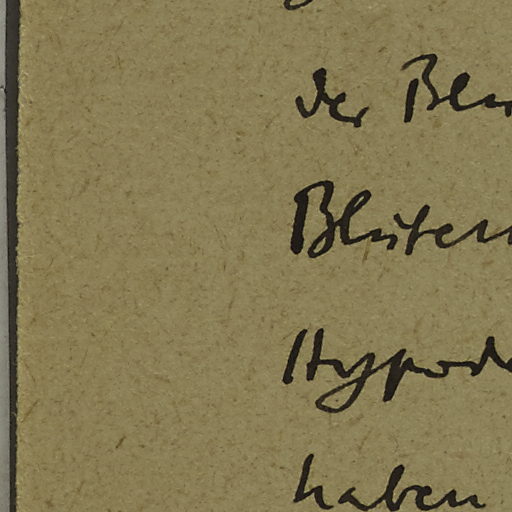 der Blü
Blüten
Hypod
haben